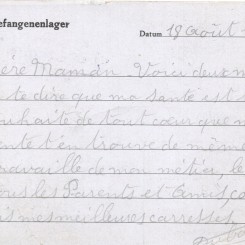 efangenenlager
Datum 18 Août
ère Maman Voici deux m
te dire que ma santé est
ouhaite de tout cœur que
ente t'en trouve de mêm
ravaille de mon métier, le
ous les Parents et Amis, co
is mes meilleures caresses